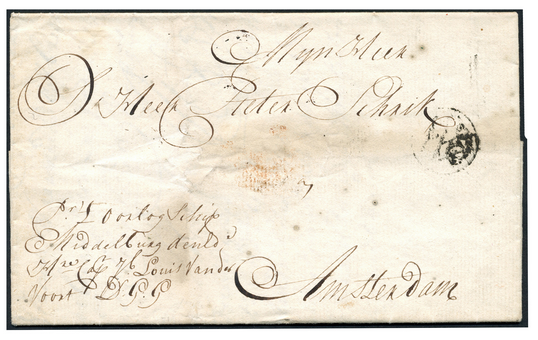 Myn Heer
De Heer Pieter Schuik
Pr. 't oorlog Schip
Middelburg den Ed.
Hre Capt. Louis Vander
Voort D. G. G
Amsterdam